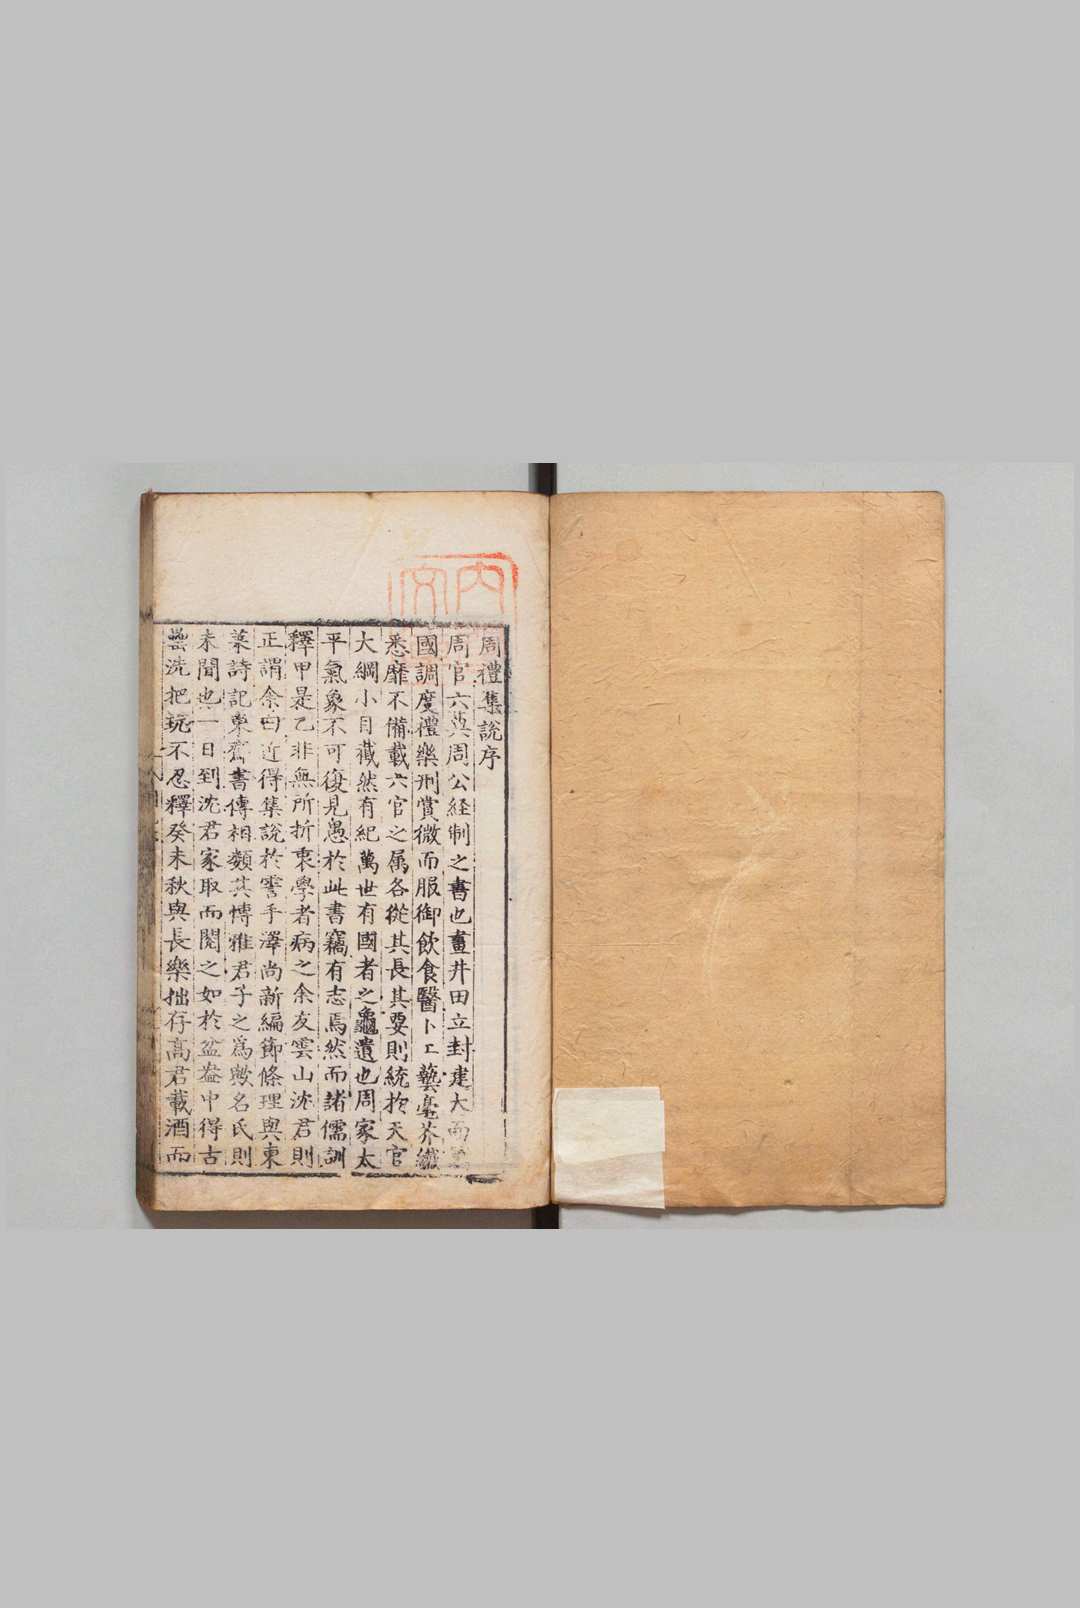 周禮集說序
周官六典周公経制之書也畫井田立封建大而
國調度禮樂刑賞微而服御飲食醫卜工藝毫芥纖
悉靡不備載六官之属各從其長其要則統於天官
大綱小目截然有紀萬世有國者之龜遺也周家太
平氣象不可復見愚於此書竊有志焉然而諸儒訓
釋甲是乙非無所折衷學者病之余友雲山沈君則
正謂余曰近得集說於霅手澤尚新編節條理與東
萊詩記東齋書傳相類其博雅君子之為歟名氏則
未聞也一日到沈君家取而閱之如於盆盎中得古
罍洗把玩不忍釋癸未秋與長樂拙存高君載酒而
內
文